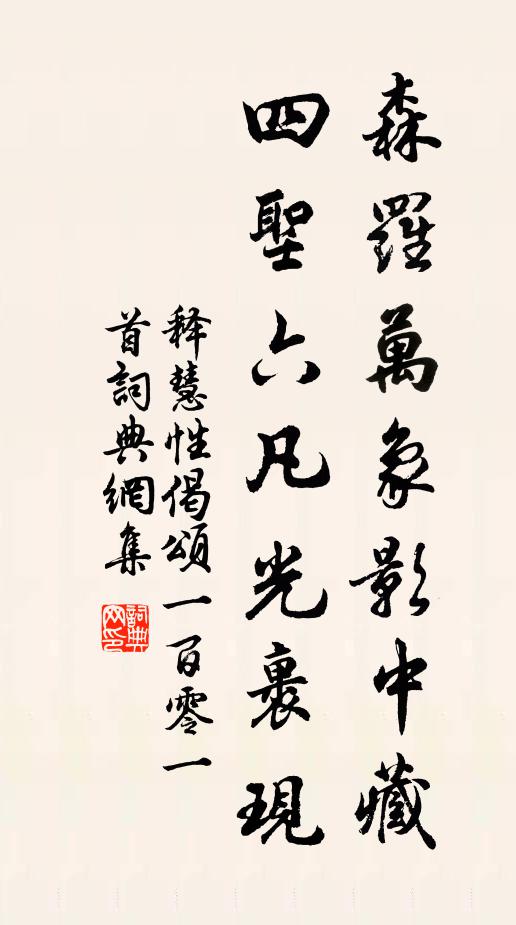 森羅萬象影中藏
四聖六凡光裏現
释慧性偈頌一百零一
首詞典網集
詞典网印